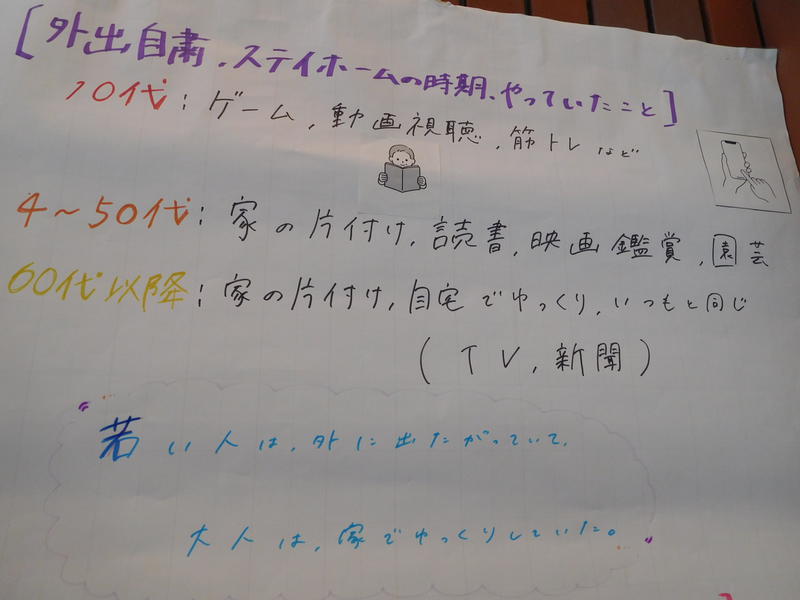 [外出自粛、ステイホームの時期、やっていたこと]
10代：ゲーム、動画視聴、筋トレなど
4～50代：家の片付け、読書、映画鑑賞、園芸
60代以降：家の片付け、自宅でゆっくり、いつもと同じ
(TV、新聞)
若い人は、外に出たがっていて、
大人は、家でゆっくりしていた。